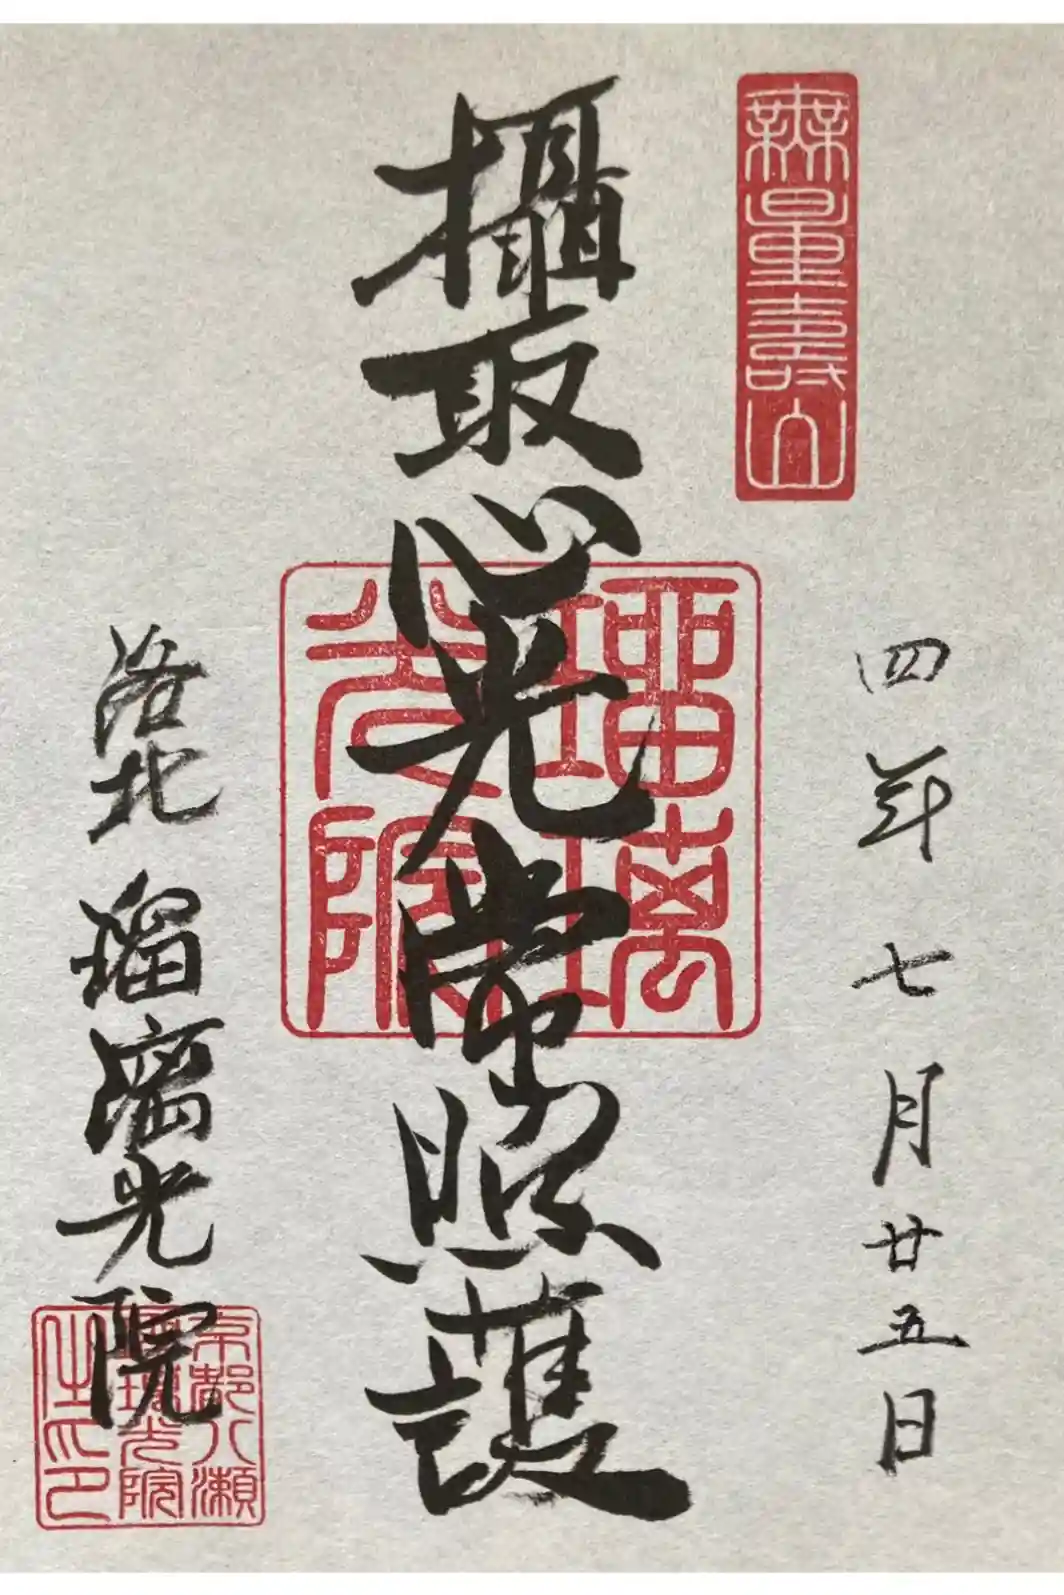 無量壽山
四年七月廿五日
攝取心光常照護
瑠璃
光院
洛北 瑠璃光院
京都八瀬
瑠璃光院
住印